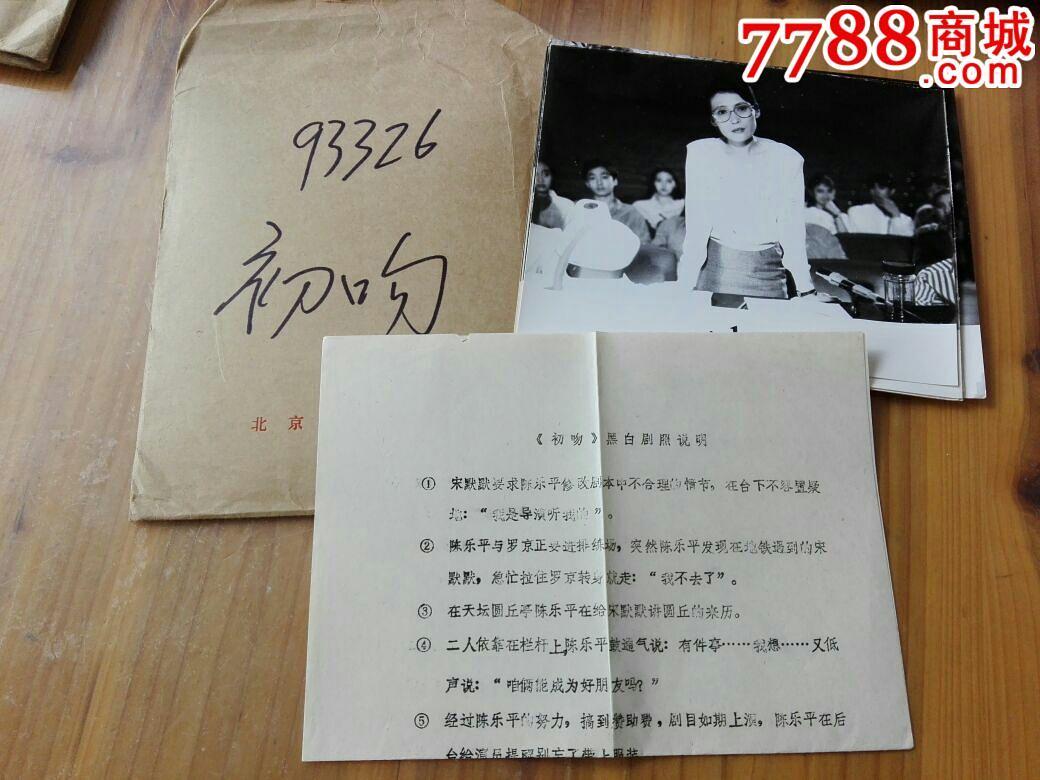 7788商城
.com
93326
初吻
北京
《初吻》黑白剧照说明
① 宋默默要求陈乐平修改剧本中不合理的情节，在台下不容置疑
地：“我是导演听我的”。
② 陈乐平与罗京正要进排练场，突然陈乐平发现在地铁遇到的宋
默默，急忙拉住罗京转身就走：“我不去了”。
③ 在天坛圆丘亭陈乐平在给宋默默讲圆丘的来历。
④ 二人依靠在栏杆上，陈乐平鼓起气说：有件亭……我想……又低
声说：“咱俩能成为好朋友吗？”
⑤ 经过陈乐平的努力，搞到赞助费，剧目如期上演，陈乐平在后
台给演员提醒别忘了带上服装